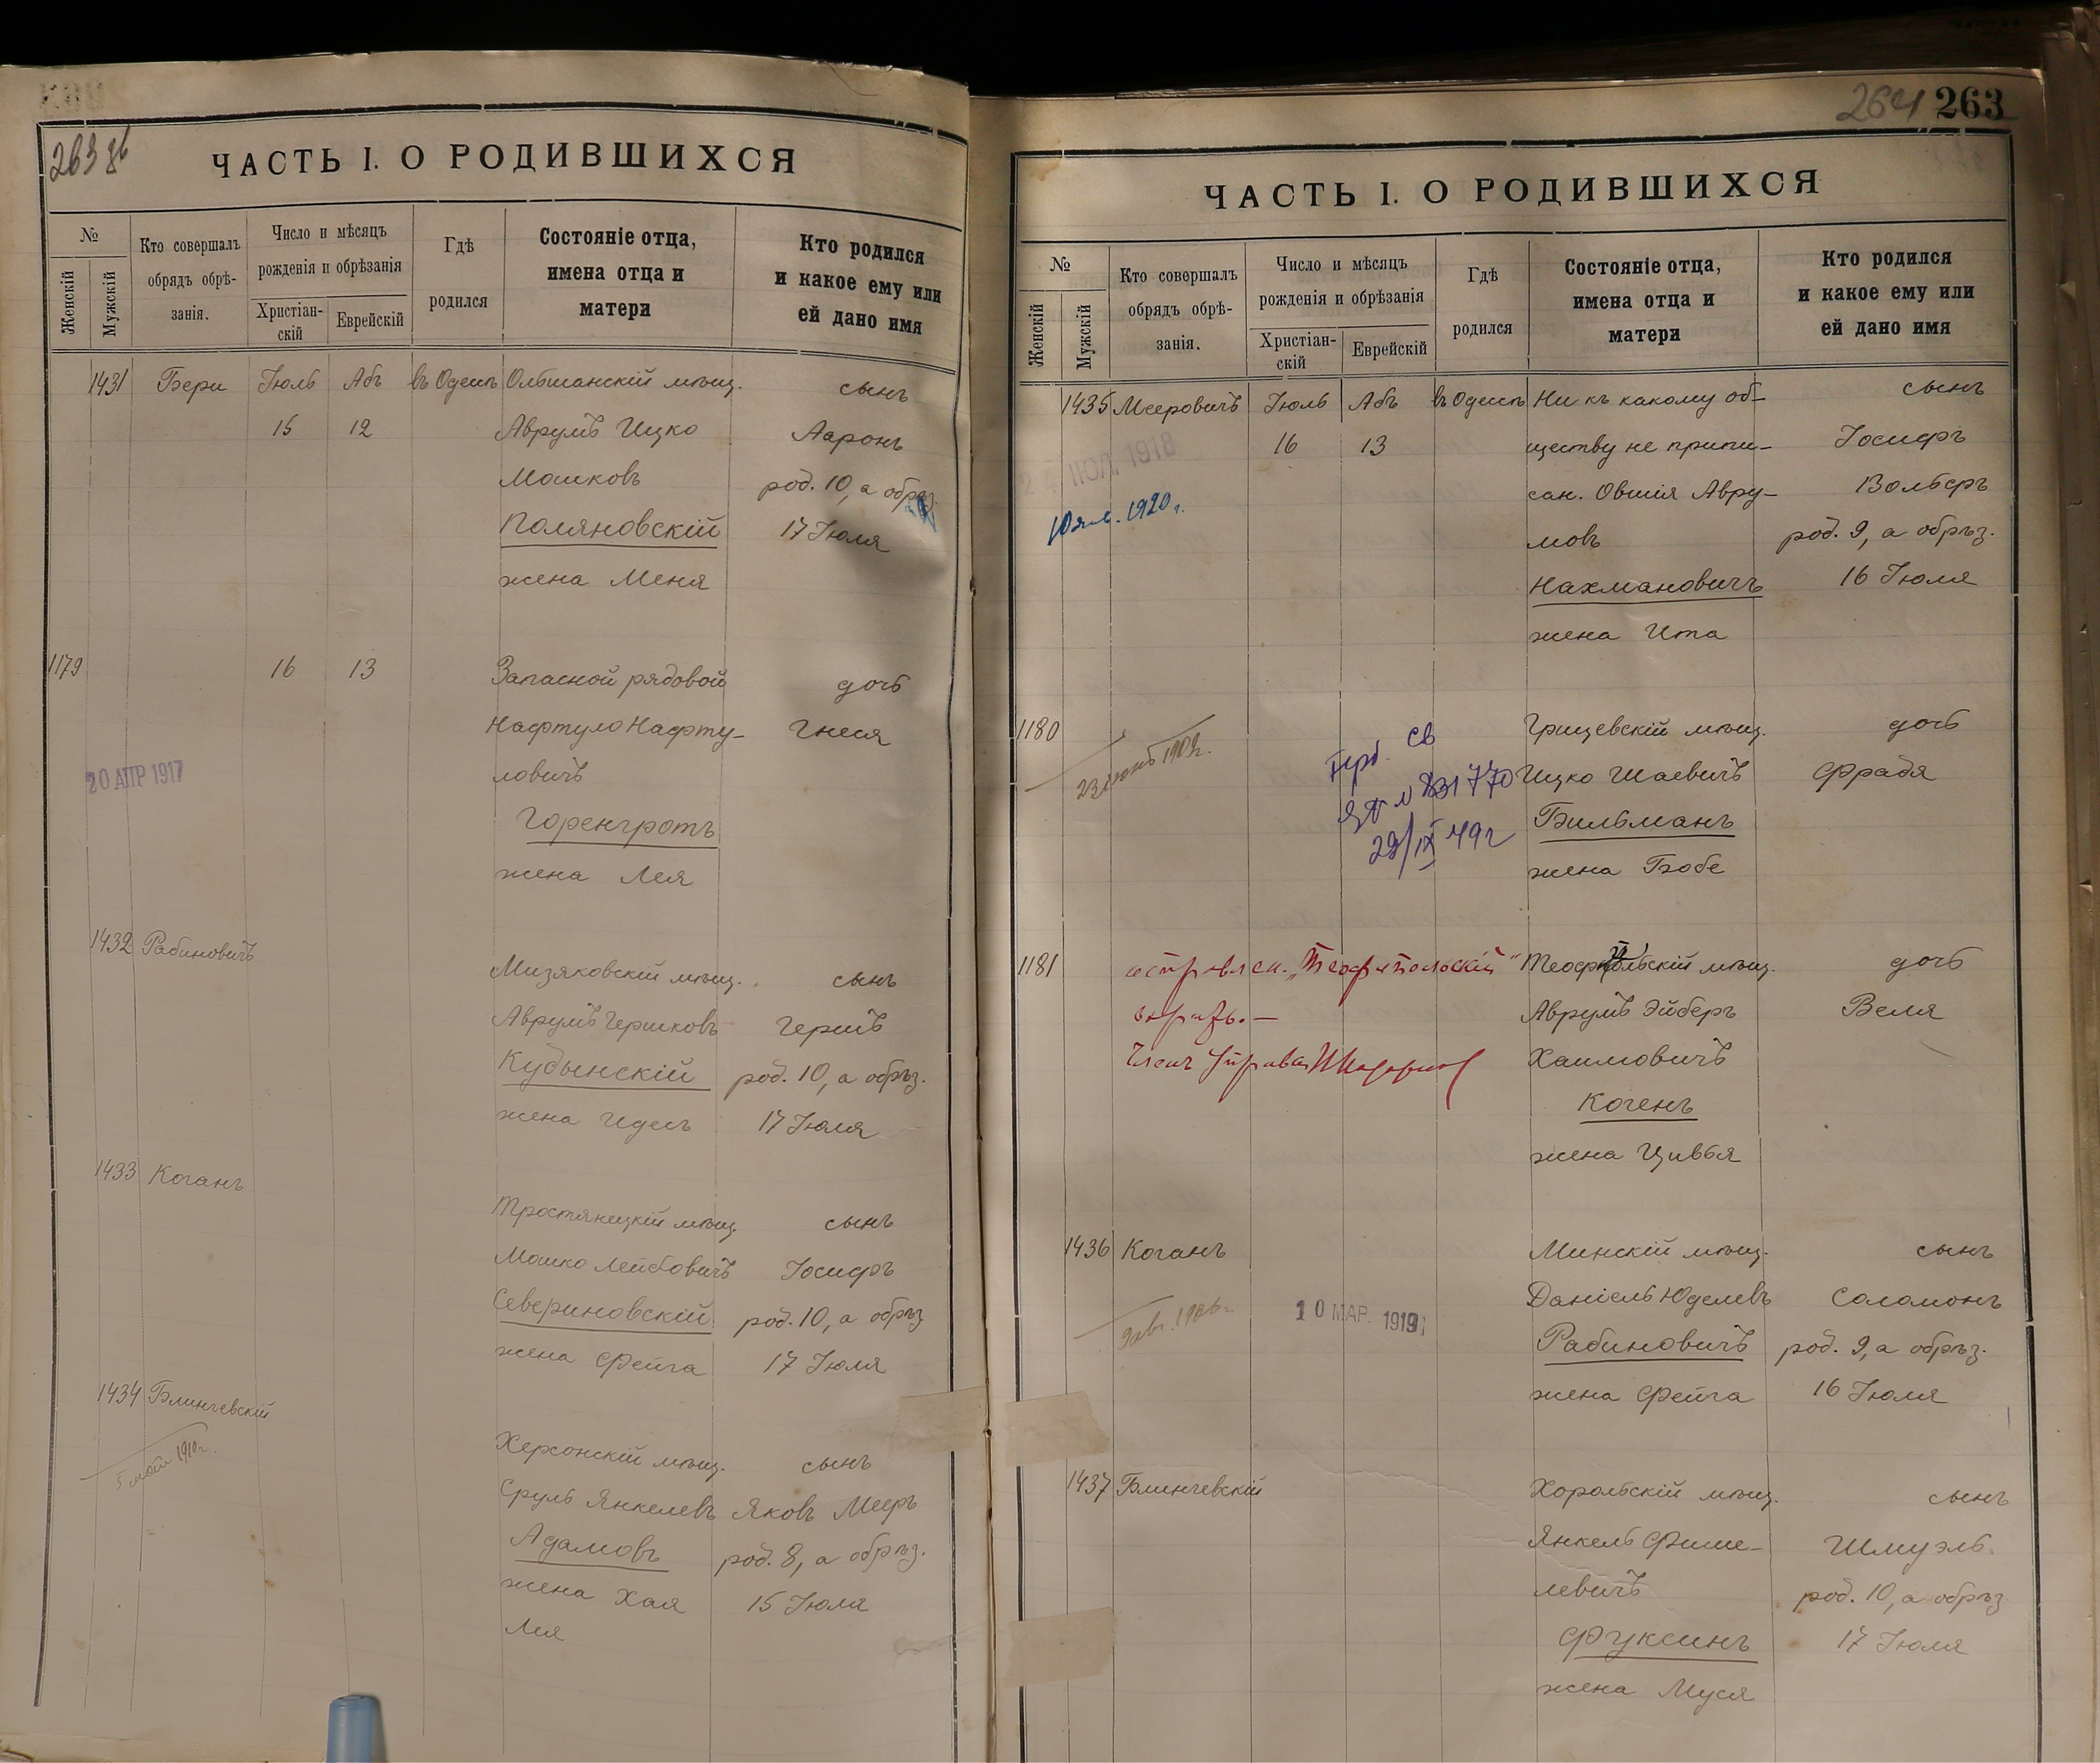 263 об
ЧАСТЬ I. О РОДИВШИХСЯ
№
Женскій
Мужскій
Кто совершалъ
обрядъ обрѣ-
занія.
Число и мѣсяцъ
рожденія и обрѣзанія
Христіан-
скій
Еврейскій
Гдѣ
родился
Состояніе отца,
имена отца и
матери
Кто родился
и какое ему или
ей дано имя
1431 Бери Іюль Абъ въ Одессѣ Ольшанскій мѣщ. сынъ
15 12 Аврумъ Ицко Ааронъ
Мошковъ род. 10, а обрѣз.
Поляновскій 17 Іюля
жена Меня
1179 16 13 Запасной рядовой дочь
Нафтуло Нафту- Гнеся
ловичъ
20 АПР 1917
Горенгротъ
жена Лея
1432 Рабиновичъ
Мизяковскій мѣщ. сынъ
Аврумъ Гершковъ Гершъ
Кудынскій род. 10, а обрѣз.
жена Идесъ 17 Іюля
1433 Коганъ
Тростянецкій мѣщ. сынъ
Мошко Лейбовичъ Іосифъ
Севериновскій род. 10, а обрѣз
жена Фейга 17 Іюля
1434 Блинчевскій
5 мая 1910 г.
Херсонскій мѣщ. сынъ
Сруль Янкелевъ Яковъ Мееръ
Адамовъ род. 8, а обрѣз.
жена Хая 15 Іюля
Лея
264 263
ЧАСТЬ I. О РОДИВШИХСЯ
№
Женскій
Мужскій
Кто совершалъ
обрядъ обрѣ-
занія.
Число и мѣсяцъ
рожденія и обрѣзанія
Христіан-
скій
Еврейскій
Гдѣ
родился
Состояніе отца,
имена отца и
матери
Кто родился
и какое ему или
ей дано имя
1435 Мееровичъ Іюль Абъ въ Одессѣ Ни къ какому об- сынъ
16 13 ществу не припи- Іосифъ
24 ІЮЛ. 1918
сан. Овшія Авру- Вольфъ
10 янв. 1920 г.
мовъ род. 9, а обрѣз.
Нахмановичъ 16 Іюля
жена Ита
1180 Грицевскій мѣщ. дочь
23 1909 г.
св
ЯЮ № 831770 Ицко Шаевичъ Фрадя
29/IX 49 г
Бильманъ
жена Бобе
1181 исправлен. „Теофипольскій" Теофипольскій мѣщ. дочь
вѣрнъ.— Аврумъ Эйберъ Веля
Членъ Управы Хаимовичъ
Когенъ
жена Цивья
1436 Коганъ Минскій мѣщ. сынъ
Даніель Юделевъ Соломонъ
9 авг. 1906 г.
10 МАР. 1919
Рабиновичъ род. 9, а обрѣз.
жена Фейга 16 Іюля
1437 Блинчевскій Хорольскій мѣщ. сынъ
Янкель Фише- Шмуэль
левичъ род. 10, а обрѣз
Фуксинъ 17 Іюля
жена Муся